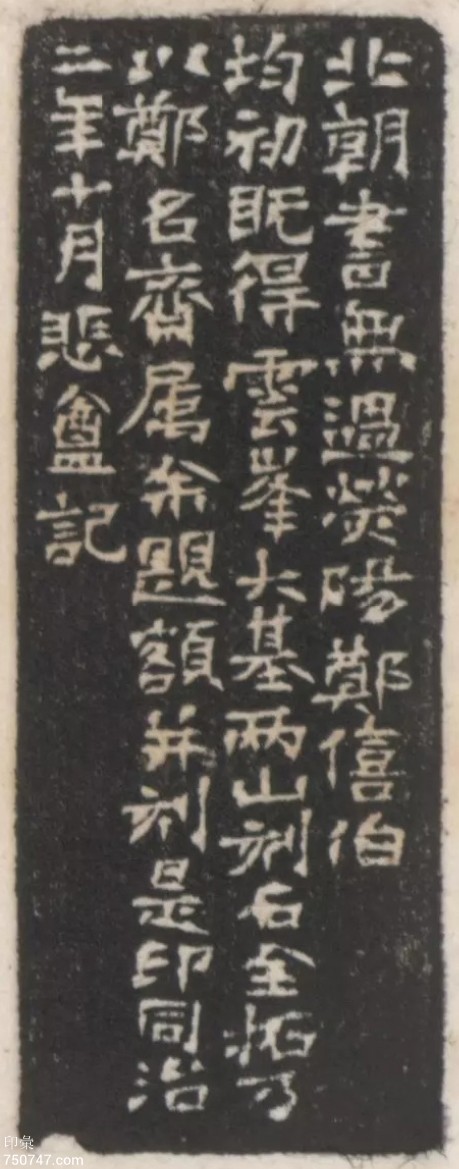 北朝書無過滎陽鄭僖伯
均初既得雲峯大基兩山刻石全拓乃
以鄭名齋属余題額并刻是印同治
二年十月悲盦記
印彙
750747.com